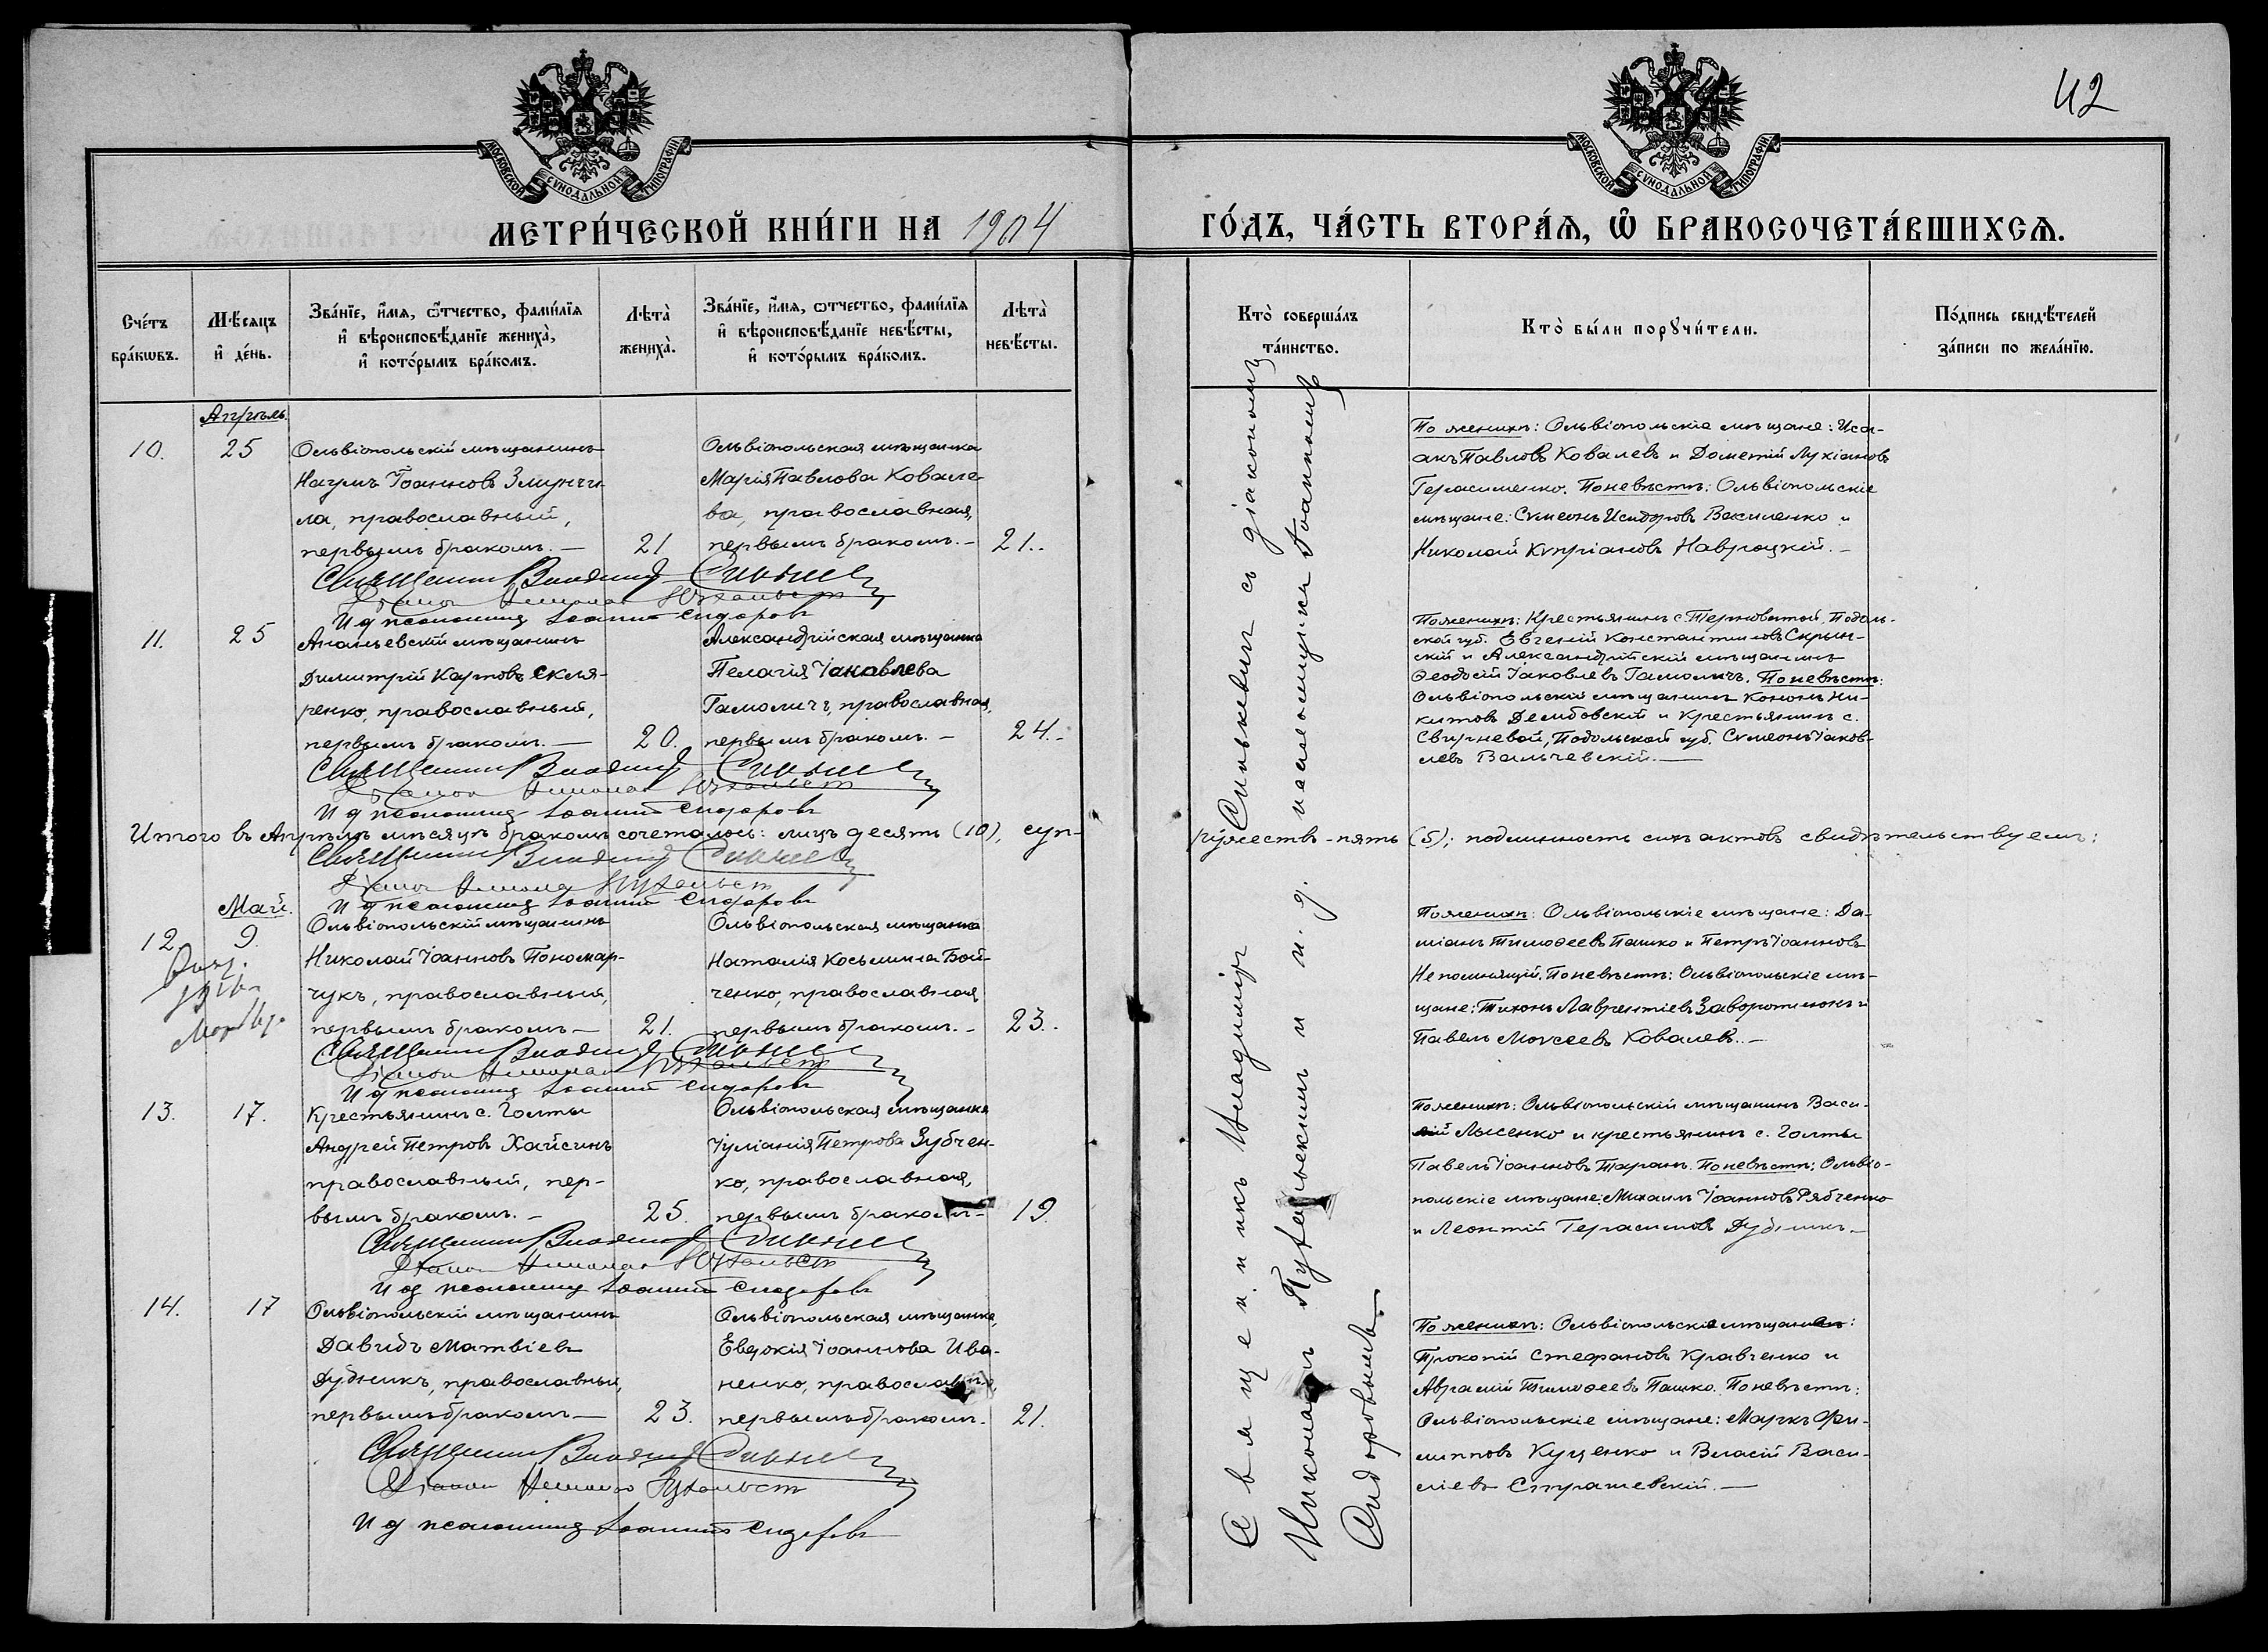 42
МОСКОВСКОЙ СѴНОДАЛЬНОЙ ТИПОГРАФІИ
МОСКОВСКОЙ СѴНОДАЛЬНОЙ ТИПОГРАФІИ
МЕТРИ́ЧЕСКОЙ КНИ́ГИ НА 1904 ГО́ДЪ, ЧА́СТЬ ВТОРА́Ѧ, Ѽ БРАКОСОЧЕТА́ВШИХСѦ.
Сче́тъ бра́кѡвъ.
Мѣ́сяцъ и҆ де́нь.
Зва́нїе, и҆́мя, ѻ҆́тчество, фами́лїя
и҆ вѣроисповѣ́данїе жениха̀,
и҆ кото́рымъ бра́комъ.
Лѣта̀ жениха̀.
Зва́нїе, и҆́мя, ѻтчество, фами́лїя
и҆ вѣроисповѣ́данїе невѣ́сты,
и҆ кото́рымъ бра́комъ.
Лѣта̀ невѣ́сты.
Кто̀ соверша́лъ
та́инство.
Кто̀ бы́ли порꙋчи́тели.
По́дпись свидѣ́телей
за́писи по жела́нїю.
Апрѣль.
10. 25
Ольвіопольскій мѣщанинъ
Наумъ Іоанновъ Змунчи-
ла, православный,
первымъ бракомъ. — 21
Ольвіопольская мѣщанка
Марія Павлова Ковале-
ва, православная,
первымъ бракомъ. — 21..
По женихѣ: Ольвіопольскіе мѣщане: Иса-
акъ Павловъ Ковалевъ и Дометій Лукіановъ
Герасименко. По невѣстѣ: Ольвіопольскіе
мѣщане: Сѵмеонъ Исидоровъ Василенко и
Николай Кипріановъ Навроцкій. —
Священникъ Владимір Синьке
И д псаломщ Іоаннъ Сидоровъ
11. 25
Ананьевскій мѣщанинъ
Димитрій Карповъ Скля-
ренко, православный,
первымъ бракомъ. — 20.
Александрійская мѣщанка
Пелагія Іаковлева
Гамоличъ, православная,
первымъ бракомъ. — 24.-
По женихѣ: Крестьянинъ с. Терноватой, Подоль-
ской губ. Евгеній Константиновъ Скрын-
скій и Александрійскій мѣщанинъ
Ѳеодосій Іаковлевъ Гамоличъ. По невѣстѣ:
Ольвіопольскій мѣщанинъ Кононъ Ни-
китовъ Дембовскій и крестьянинъ с.
Свирневой, Подольской губ. Сѵмеонъ Іаков-
левъ Вальчевскій. —
Священникъ Владимір Синьке
И д псаломщ Іоаннъ Сидоровъ
Итого въ Апрѣлѣ мѣсяцѣ бракомъ сочеталось: лицъ десять (10), суп-
ружествъ - пять (5); подлинность сихъ актовъ свидѣтельствуемъ:
Священникъ Владимір Синьке
И д псаломщ Іоаннъ Сидоровъ
Май.
12. 9.
Ольвіопольскій мѣщанинъ
Николай Іоанновъ Пономар-
чукъ, православный,
первымъ бракомъ — 21.
Ольвіопольская мѣщанка
Наталія Косьмина Бой-
ченко, православная
первымъ бракомъ. — 23..
По женихѣ: Ольвіопольскіе мѣщане: Да-
міанъ Тимоѳеевъ Пашко и Петръ Іоанновъ
Непомнящій. По невѣстѣ: Ольвіопольскіе мѣ-
щане: Тихонъ Лаврентіевъ Заворотнюкъ и
Павелъ Моѵсеевъ Ковалевъ. —
Священникъ Владимір Синьке
И д псаломщ Іоаннъ Сидоровъ
13. 17.
Крестьянинъ с. Голты
Андрей Петровъ Хайсинъ
православный, пер-
вымъ бракомъ. — 25.
Ольвіопольская мѣщанка
Іуліанія Петрова Зубчен-
ко, православная,
первымъ бракомъ — 19.
По женихѣ: Ольвіопольскій мѣщанинъ Васи-
лій Лысенко и крестьянинъ с. Голты
Павелъ Іоанновъ Таранъ. По невѣстѣ: Ольвіо-
польскіе мѣщане: Михаилъ Іоанновъ Рябченко
и Леонтій Герасимовъ Дубникъ —
Священникъ Владимір Синьке
И д псаломщ Іоаннъ Сидоровъ
14. 17
Ольвіопольскій мѣщанинъ
Давидъ Матвіевъ
Дубникъ, православный,
первымъ бракомъ — 23.
Ольвіопольская мѣщанка,
Евдокія Іоаннова Ива-
ненко, православная,
первымъ бракомъ. 21.
По женихѣ: Ольвіопольскіе мѣщане:
Прокопій Стефановъ Кравченко и
Аврамій Тимоѳеевъ Пашко. По невѣстѣ:
Ольвіопольскіе мѣщане: Маркъ Фи-
липповъ Куценко и Власій Васи-
ліевъ Страшевскій. —
Священникъ Владимір Синьке
Діаконъ Николай
И д псаломщ Іоаннъ Сидоровъ
Священникъ Владиміръ Синькевичъ съ діакономъ
Николаемъ Пухальскимъ и и. д. псаломщика Іоанномъ
Сидоровымъ.